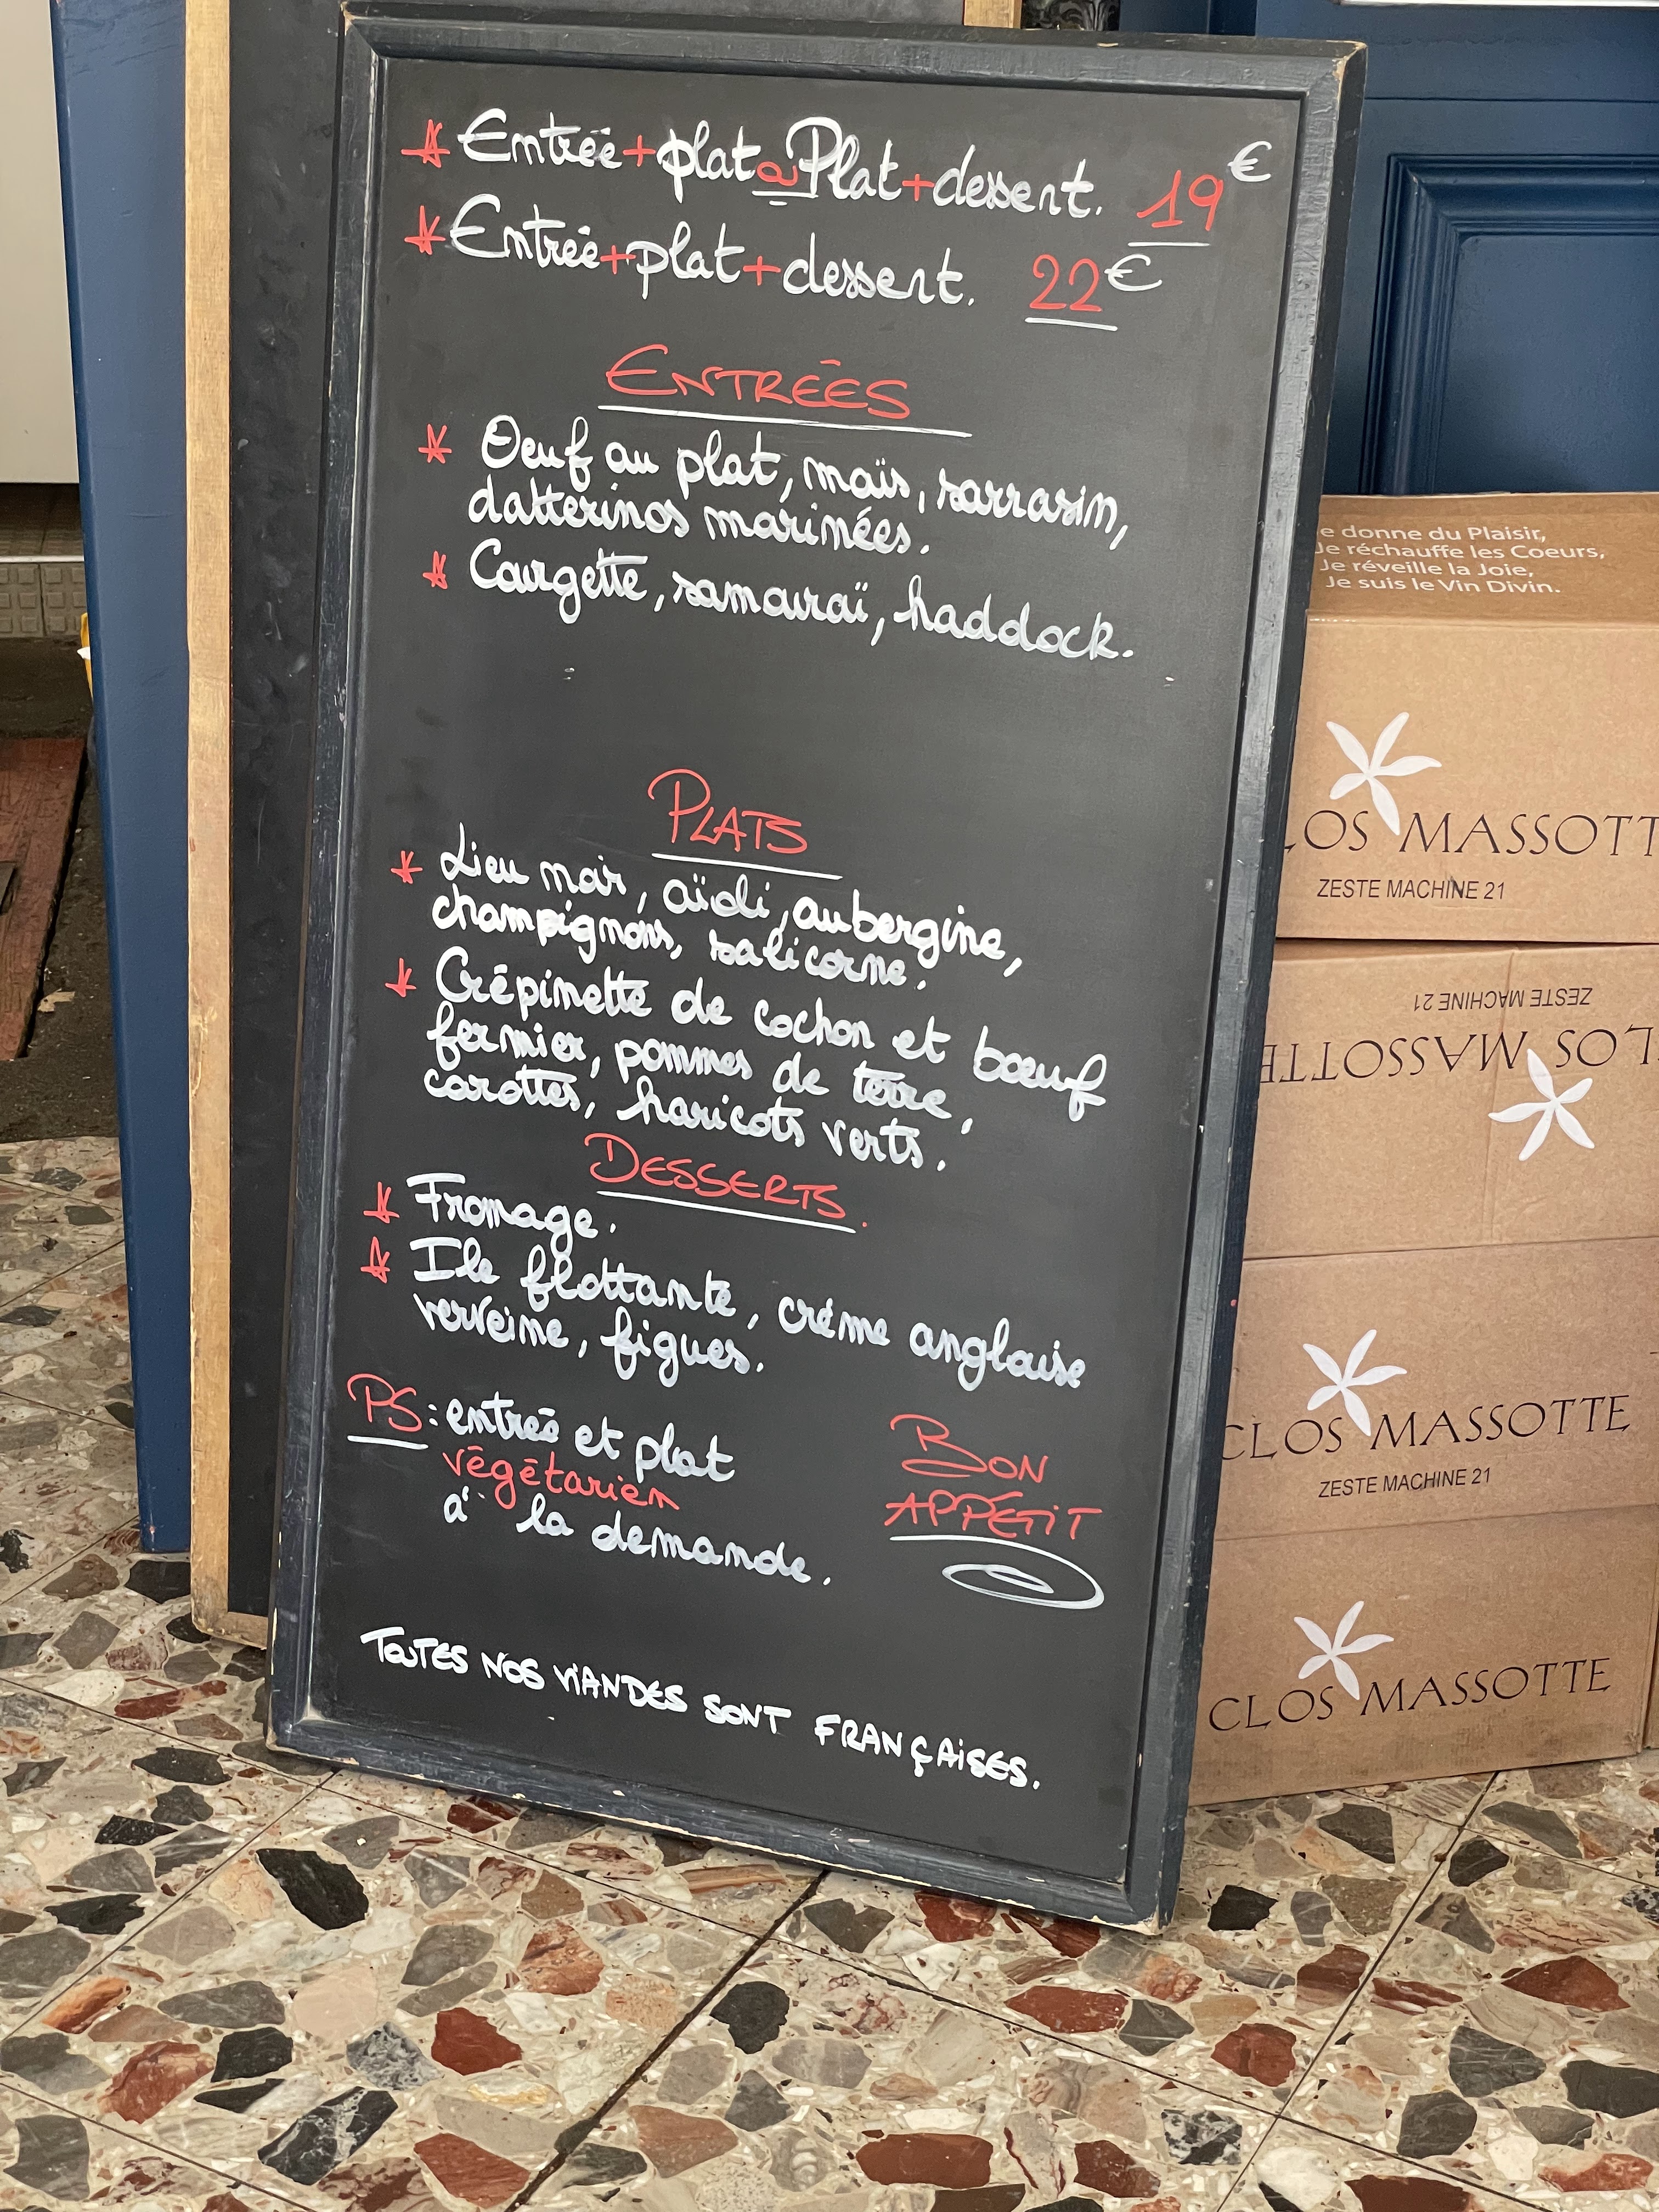 * Entrée+plat ou Plat+dessert. 19€
* Entrée+plat+dessert. 22€
ENTRÉES
* Oeuf au plat, maïs, sarrasin,
datterinos marinées.
* Courgette, samouraï, haddock.
PLATS
* Lieu noir, aïoli, aubergine,
champignons, salicorne.
* Crépinette de cochon et bœuf
fermier, pommes de terre,
carottes, haricots verts.
DESSERTS.
* Fromage.
* Ile flottante, crème anglaise
verveine, figues.
PS: entrée et plat
végétarien
à la demande.
BON
APPÉTIT
TOUTES NOS VIANDES SONT FRANÇAISES.
e donne du Plaisir,
Je réchauffe les Coeurs,
Je réveille la Joie,
Je suis le Vin Divin.
LOS MASSOTT
ZESTE MACHINE 21
ZESTE MACHINE 21
LOS MASSOTTE
CLOS MASSOTTE
ZESTE MACHINE 21
CLOS MASSOTTE